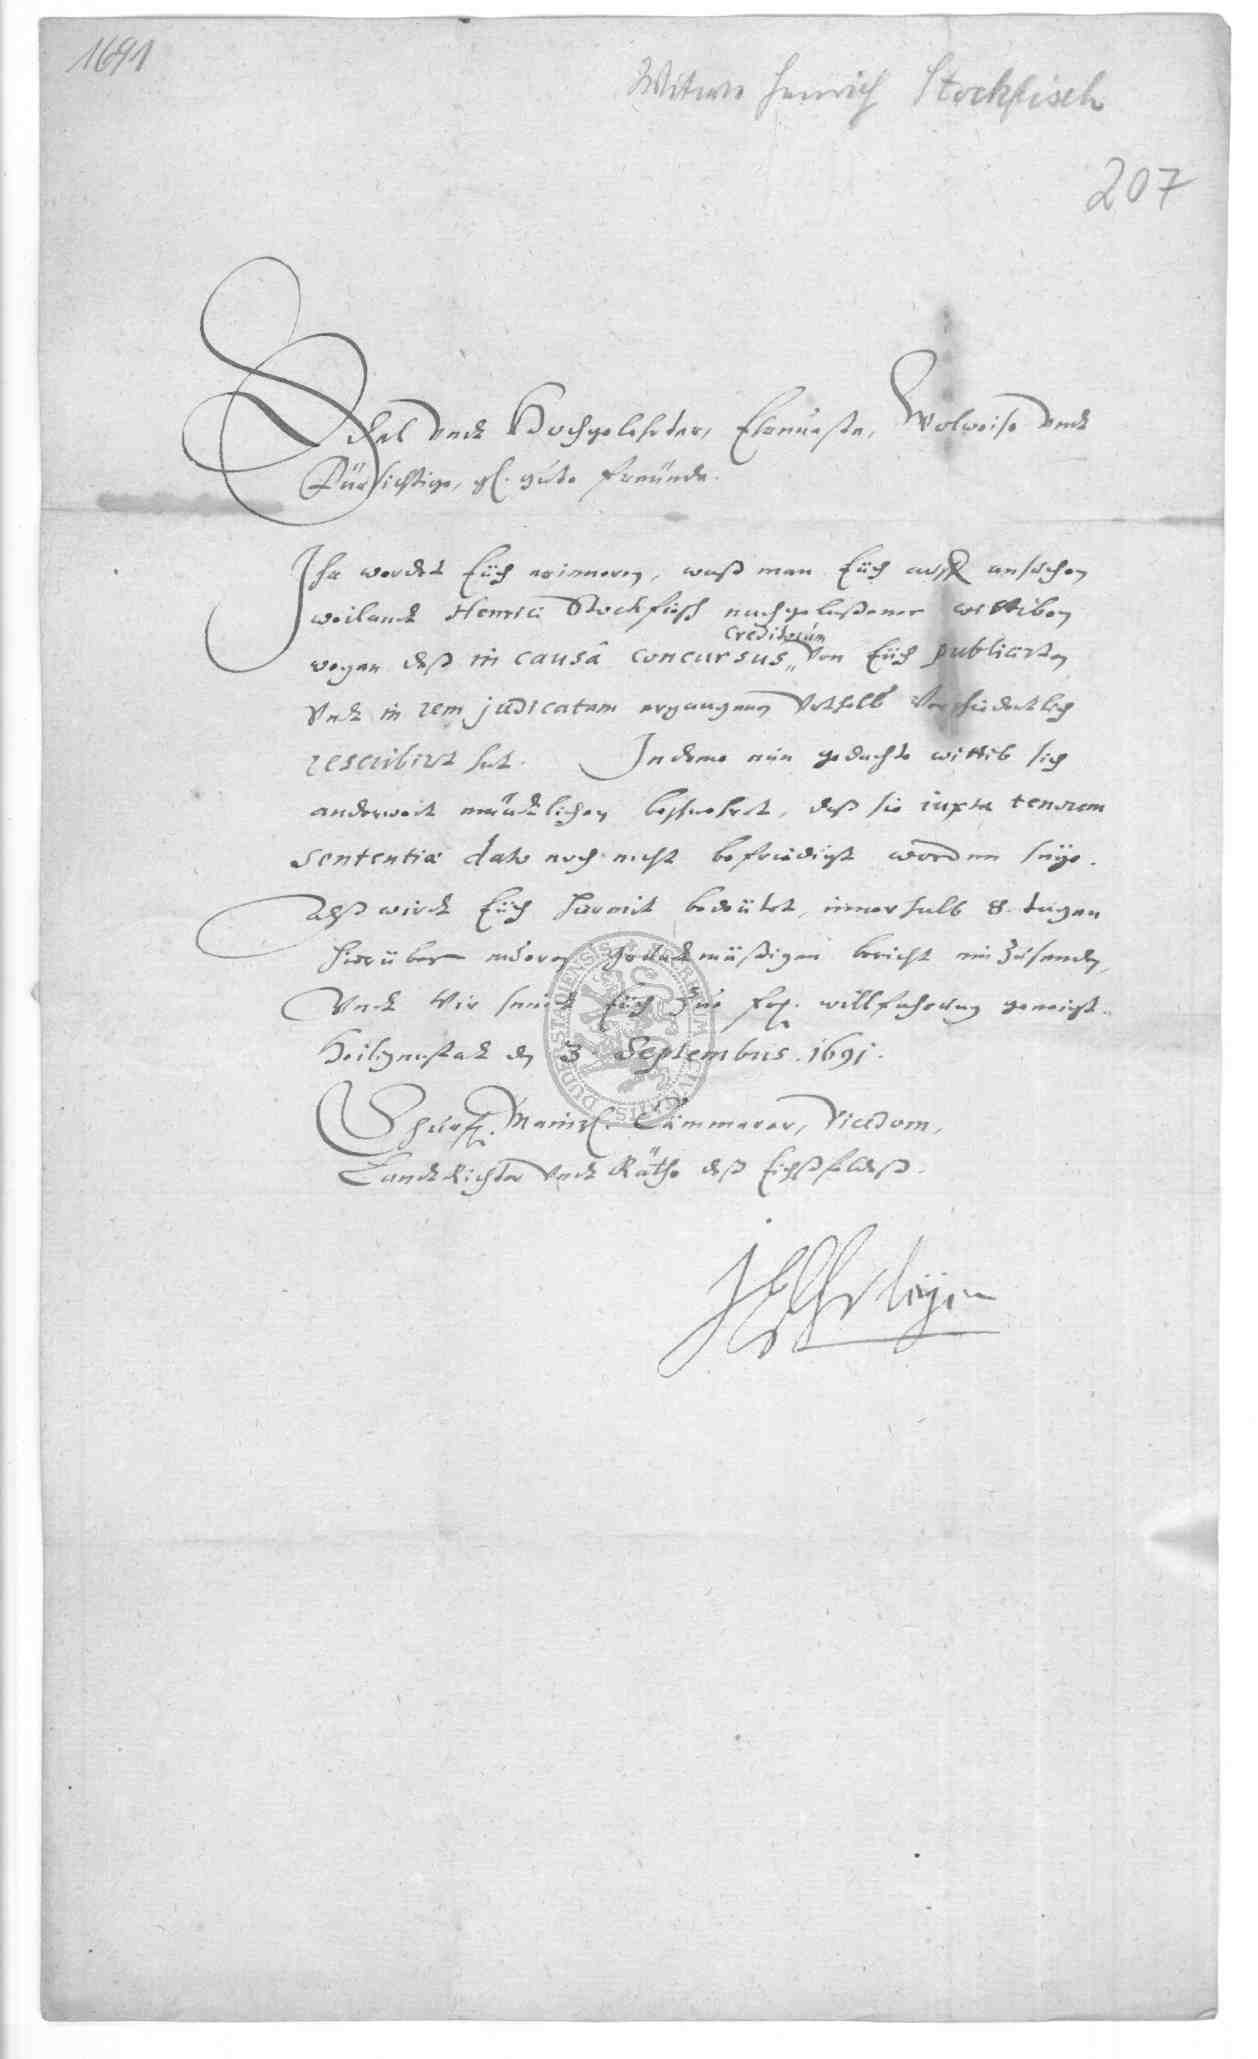 1691
Witwe Henrich Stockfisch
207
Edel undt Hochgelehrter, Ehrnueste, Wolweise undt
Fürsichtige, gl. gute freünde.
Ihr werdet Eüch erinneren, waß man Eüch auff ansuchen
weilandt Henrici Stockfisch nachgelaßener wittiben
creditorum
wegen deß in causâ concursus von Eüch publicirten
undt in rem judicatam ergangenen Urtheilß verschiedentlich
rescribirt hat. Indeme nun gedachte wittib sich
anderweit mündtlichen beschwehret, daß sie iuxta tenorem
sententiæ dato noch nicht befriediget worden seÿe.
Alß wirdt Eüch hiermit bedeütet, innerhalb 8. tagen
hierüber mäßigen bericht ein Zusenden,
undt Wir seindt Eüch Zue willfahrung geneigt.
Heiligenstadt den 3. Septembris. 1691.
Churf. Maintz. Cammerer, Vicedom,
Landtrichter undt Räthe deß Eichßfeldeß.